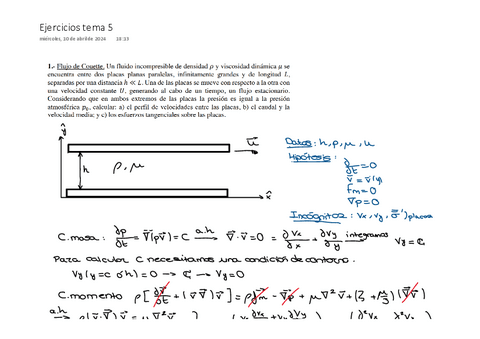 Ejercicios tema 5
miércoles, 10 de abril de 2024 18:33
1.- Flujo de Couette. Un fluido incompresible de densidad ρ y viscosidad dinámica μ se
encuentra entre dos placas planas paralelas, infinitamente grandes y de longitud L,
separadas por una distancia h ≪ L. Una de las placas se mueve con respecto a la otra con
una velocidad constante U, generando al cabo de un tiempo, un flujo estacionario.
Considerando que en ambos extremos de las placas la presión es igual a la presión
atmosférica p₀, calcular: a) el perfil de velocidades entre las placas, b) el caudal y la
velocidad media; y c) los esfuerzos tangenciales sobre las placas.
ŷ
ū
h ρ, μ
x̂
Datos: h, ρ, μ, u
Hipótesis: ∂/∂t = 0
v̄ = v̄(y)
Fm = 0
∇p = 0
Incógnitas: vx, vy, σ̿')placas
C.masa: ∂ρ/∂t + ∇̄(ρv̄) = C → a.h ∇̄·v̄ = 0 = ∂vx/∂x + ∂vy/∂y integramos Vy = C
Para calcular C necesitamos una condición de contorno.
Vy(y=0 ó h) = 0 → C → Vy = 0
C.momento ρ[∂v̄/∂t + (v̄ ∇̄) v̄] = ρf̄m − ∇̄p + μ∇²v̄ + (ξ + μ/3)(∇̄v̄)